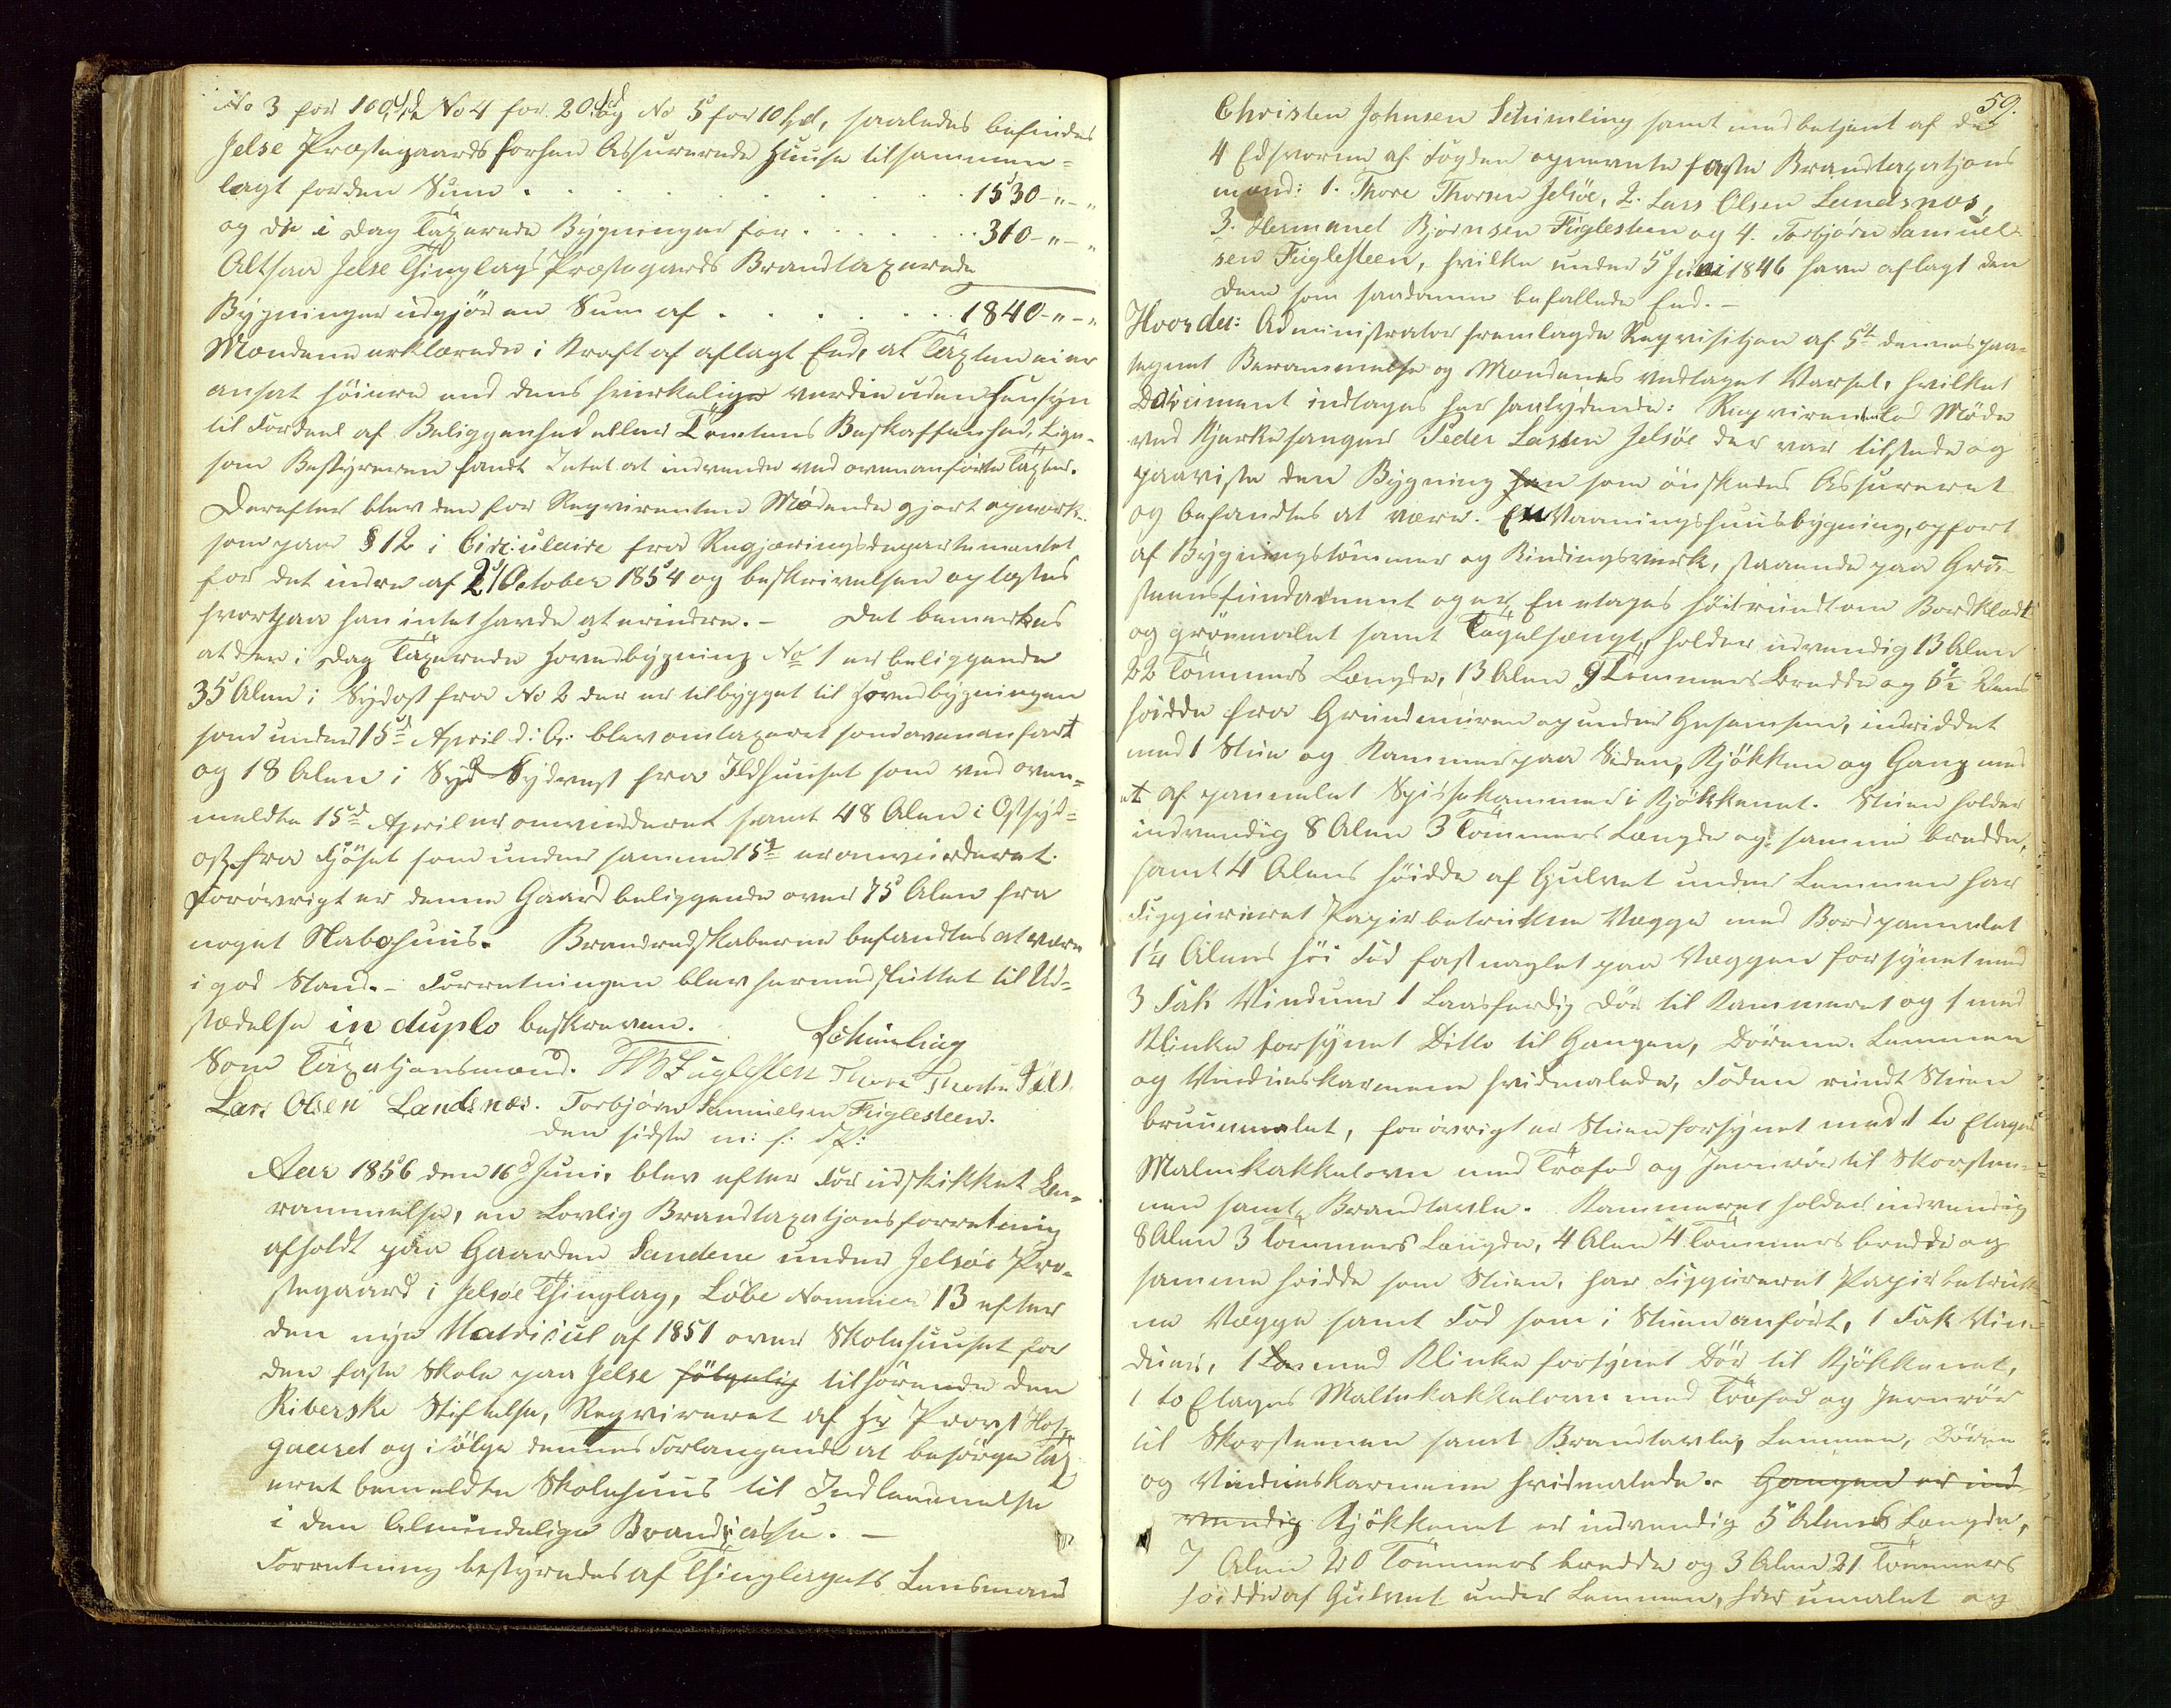 No 3 for 160 Spd, No 4 for 20 Spd og No 5 for 10 Spd, saaledes befindes
Jelse Præstegaards forhen Assurerede Huuse tilsammen-
lagt for den Sum . . . . . . 1530-"-"
og de i Dag Taxerede Bygninger for . . . . . . 310-"-"
Altsaa Jelse Thinglags Præstegaards Brandtaxerede
Bygninger udgjør en Sum af . . . . . . 1840-"-"
Mændene erklærede i Kraft af aflagt Eed, at Taxten ei er
ansat høiere end dens virkelige værdie uden Hensyn
til Fordeel af Beliggenhed eller Tomtens Beskaffenhed, lige-
som Bestyreren fandt Intet at indvende ved ovenanførte Taxter.
Derefter blev den for Reqvirenten Mødende gjort opmærk-
som paa § 12 i Circulaire fra Regjeringsdepartementet
for det indre af 21 October 1854 og beskrivelsen oplæstes
hvorpaa han intet havde at erindre. – Det bemærkes
at den i Dag Taxerede Hovedbygning No 1 er beliggende
35 Alen i Sydost fra No 2 der er tilbygget til Hovedbygningen
som under 15de April d: A: blev omtaxeret som ovenanført
og 18 Alen i Syd Sydvest fra Ildhuuset som ved oven-
meldte 15d April er omvurderet samt 48 Alen i Ostsyd-
ost fra Fjøset som under samme 15de er omvurderet.
Forøvrigt er denne Gaard beliggende over 75 Alen fra
noget Nabohuus. Brandredskaberne befandtes at være
i god Stand. – Forretningen blev hermed sluttet til Ud-
stædelse in duplo beskreven.
Schimling
Som Taxationsmænd. HB Fuglesten Thore Thorsen Jels.
Lars Olsen Landsnæs. Torbjørn Samuelsen Fuglesteen.
den sidste m: f: P:
Aar 1856 den 16d Juni, blev efter Forudskikket Be-
rammelse, en Lovlig Brandtaxationsforretning
afholdt paa Gaarden Sandene under Jelsøe Præ-
stegaard i Jelsøe Thinglag, Løbe Nommer 13 efter
den nye Matricul af 1851 over Skolehuuset for
den faste Skole paa Jelse følgelig tilhørende den
Riberske Stiftelse, Reqvireret af Hr Provst Hof-
gaard og ifølge dennes Forlangende at besørge Tax-
eret bemeldte Skolehuus til Indlemmelse
i den Almindelige Brandcasse. –
Forretning bestyredes af Thinglagets Lensmand
59.
Christen Johnsen Schimling samt med betjent af de
4 Edsvorne af Fogden opnevnte faste Brandtaxations
mænd: 1. Thore Thorsen Jelsøe, 2. Lars Olsen Landsnæs,
3. Hermand Bjørnsen Fuglesteen og 4. Torbjørn Samuel-
sen Fuglesteen, hvilke under 5 Juni 1846 have aflagt den
dem som saadanne befallede Eed. –
Hvorda: Administrator fremlagde Reqvisition af 5te dennes paa-
tegnet Berammelse og Mændenes vedtaget Varsel, hvilket
Document indtages her saalydende: Reqvirenten lod Møde
ved Kjerkesanger Peder Lassen Jelsøe der var tilstede og
paaviste den Bygning han som ønskedes Assureret
og befandtes at være. En Vaaningshuusbygning, opført
af Bygningstømmer og Bindingsverk, staaende paa Graa-
steensfundament og er, En etages høi rundt om Bordklædt
og grønmalet samt Tagelhængt, holder udvendig 13 Alen
22 Tommers Længde, 13 Alen 9 Tommers Bredde og 6½ Alens
høidde fra Grundmuren og under Gesemsen, indriddet
med 1 Stue og Kammer paa Siden, Kjøkken og Gang med
et af pannelet Spisekammer i Kjøkkenet. Stuen holder
indvendig 8 Alen 3 Tommers Længde og samme bredde,
samt 4 Alens høidde af Gulvet under Lemmen har
Figgureret Papirbetrukne Vægge med Bordpannelet
1¼ Alens høi Fod fastnaglet paa Væggen forsynet med
3 Fak Vinduer 1 Laasferdig Dør til Kammeret og 1 med
Klinke forsynet Ditto til Gangen, Dørene. Lemmen
og Vindueskarmene hvidmalede, Foden rundt Stuen
bruunmalet, forøvrigt er Stuen forsynet med 1 to Etages
Malmkakkelovn med Træfod og Jernrør til Skorsten-
nen samt Brandtavle. Kammeret holder indvendig
8 Alen 3 Tommers Længde, 4 Alen 4 Tommers bredde og
samme høidde som Stuen, har Figgureret Papirbetruk
ne Vægge samt Fod som i Stuen anført, 1 Fak Vin-
duer, 1 Laa med Klinke forsynet Dør til Kjøkkenet,
1 to Etages Malmkakkelovn med Træfod og Jernrør
til Skorsteenen samt Brandtavle, Lemmen, Døren
og Vindueskarmene hvidmalede. – Gangen er ind-
vendig Kjøkkenet er indvendig 5 Alens Længde,
7 Alen 20 Tommers bredde og 3 Alen 21 Tommers
høidde af Gulvet under Lemmen, har umalet og